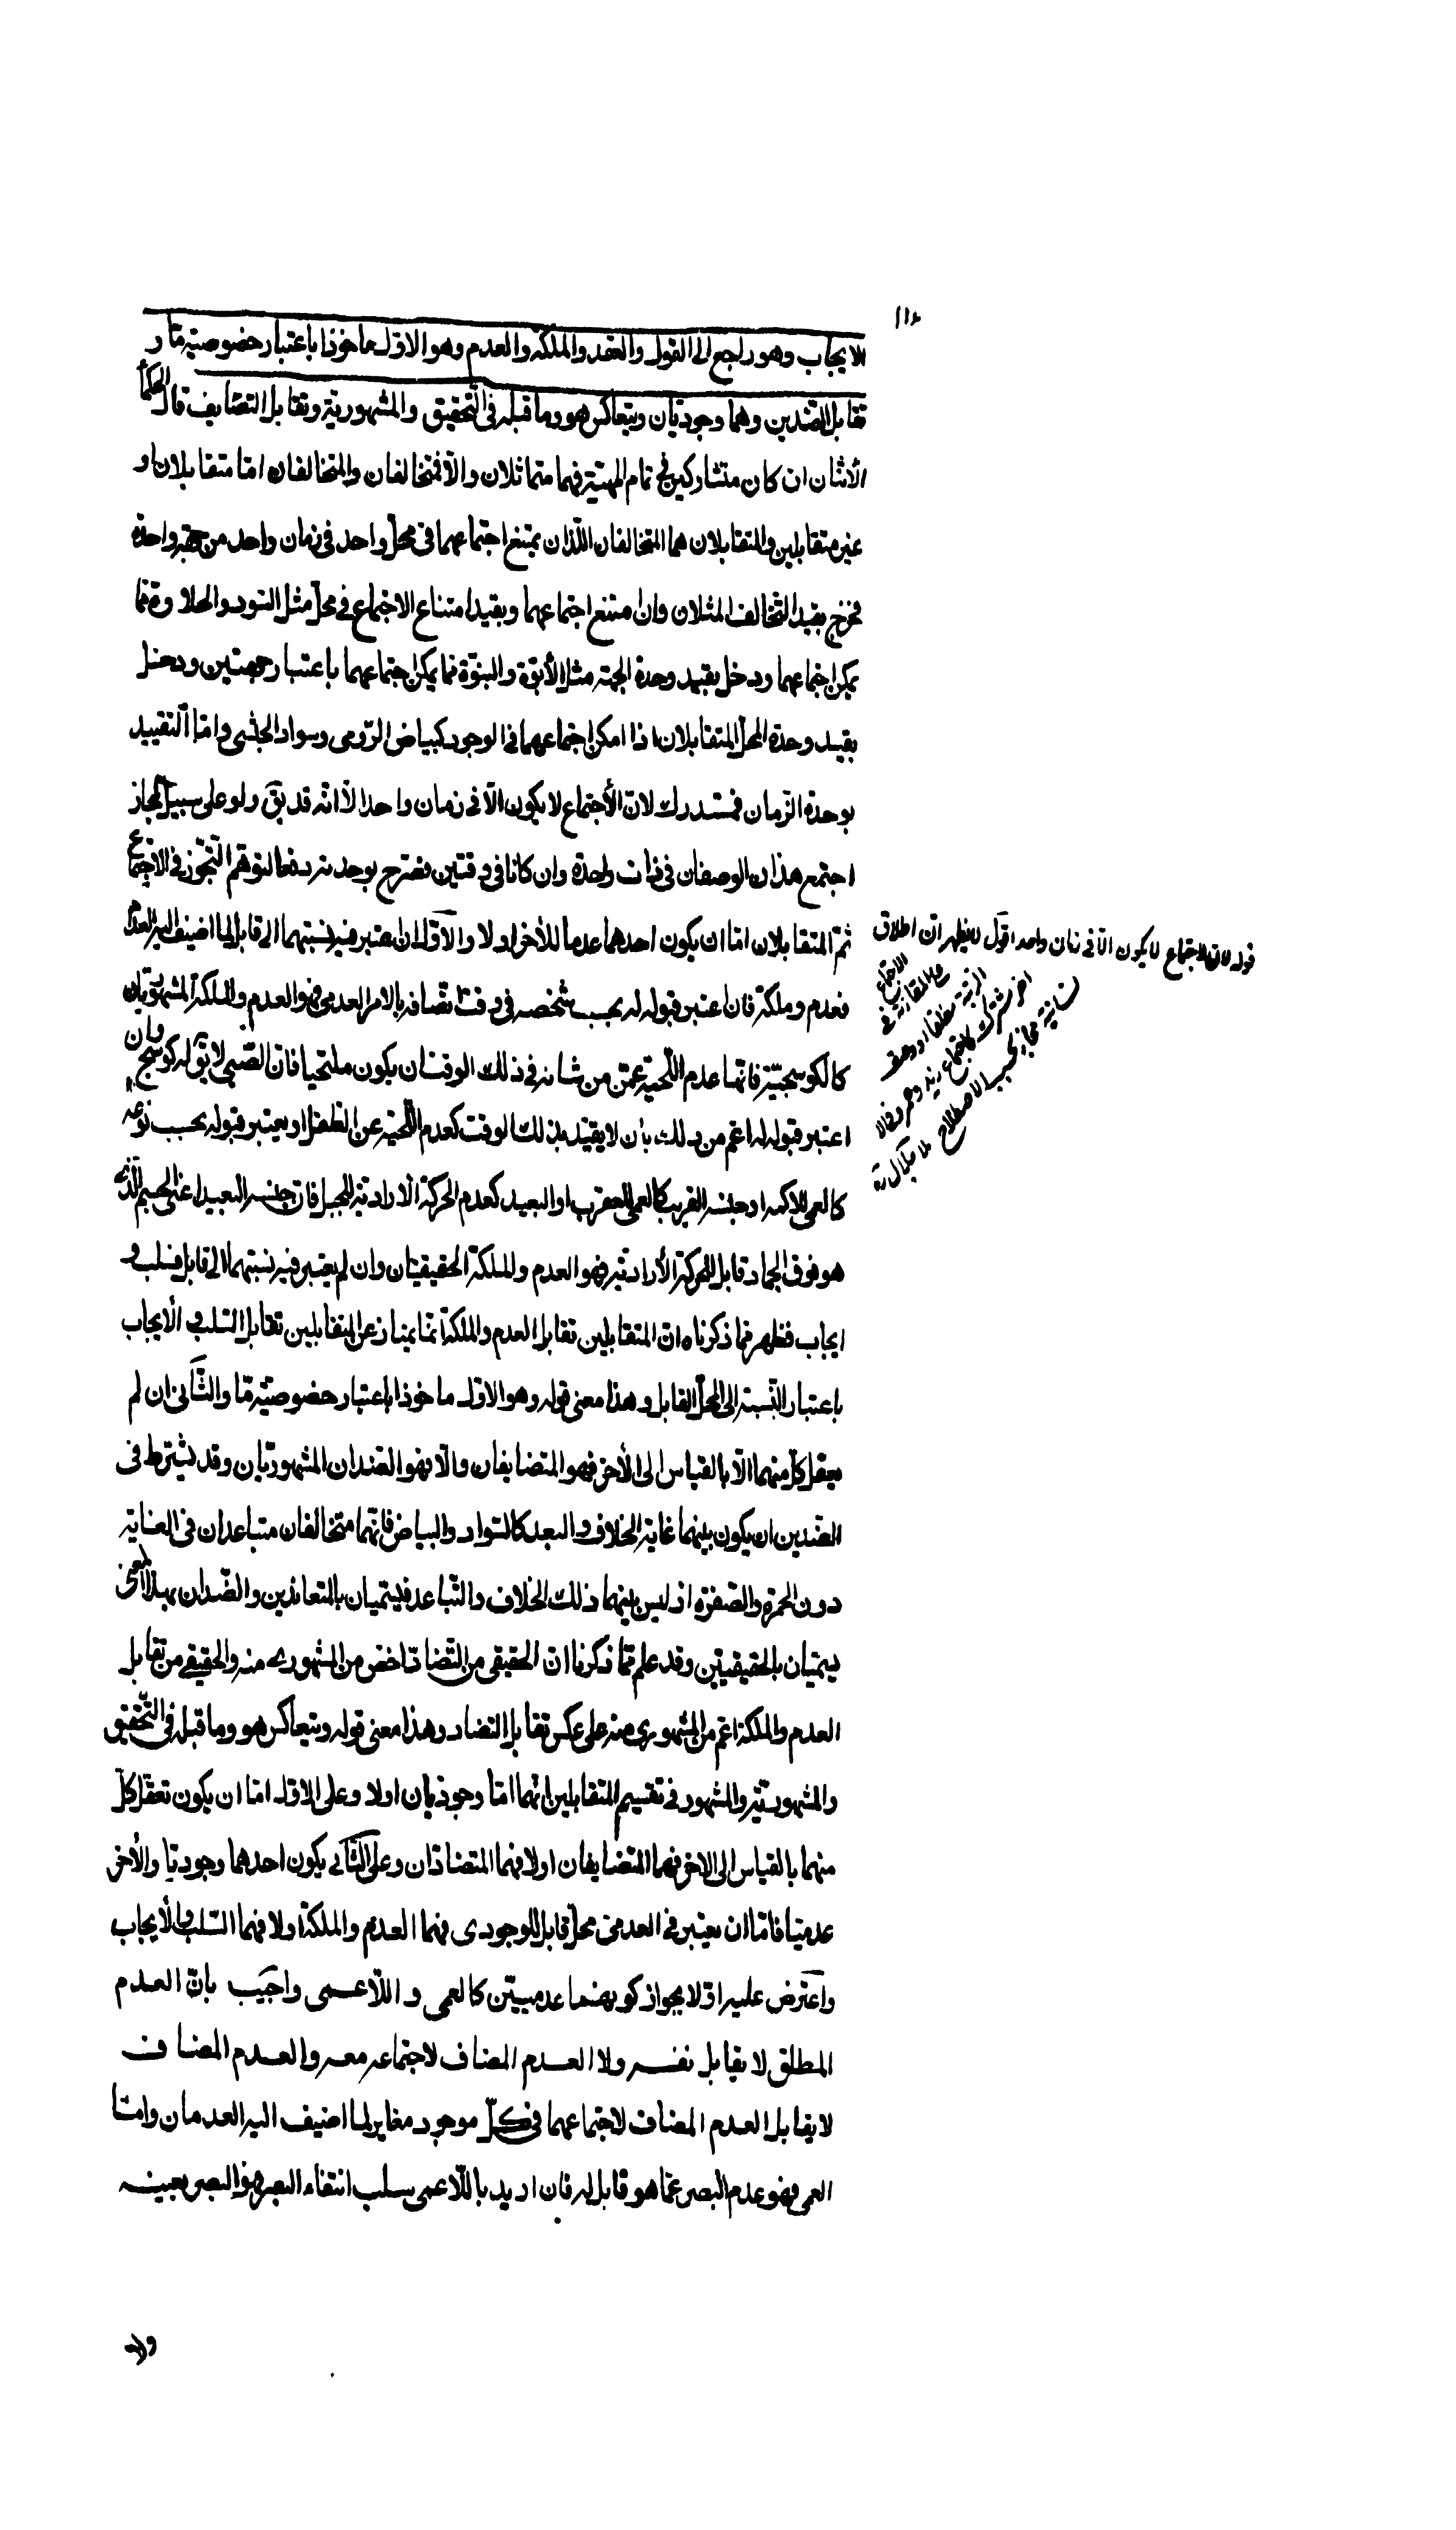 الايجاب وهو راجع الى القول والعقد والملكة والعدم وهو الاول ماخوذا باعتبار خصوصية ما و
تقابل الضدين وهما وجوديان ويتعاكس هو وما قبله فى التحقيق والمشهورية وتقابل التضايف قال الحكما
الاثنان ان كان متشاركين فى تمام المهية فهما متماثلان والا فمتخالفان والمتخالفان اما متقابلان او
غير متقابلين والمتقابلان هما المتخالفان اللذان يمتنع اجتماعهما فى محل واحد فى زمان واحد من جهة واحدة
فخرج بقيد التخالف المثلان وان امتنع اجتماعهما وبقيد امتناع الاجتماع فى محل مثل السواد والحلاوة مما
يمكن اجتماعهما ودخل بقيد وحدة الجهة مثل الأبوة والبنوة مما يمكن اجتماعهما باعتبار جهتين ودخل
بقيد وحدة المحل المتقابلان اذا امكن اجتماعهما فى الوجود كبياض الرومى وسواد الحبشى واما التقييد
بوحدة الزمان فمستدرك لان الأجتماع لا يكون الا فى زمان واحد الا انه قد يق ولو على سبيل المجاز
اجتمع هذان الوصفان فى ذات واحدة وان كانا فى وقتين فصرح بوحدته دفعا لتوهم التجوز فى الاجتماع
ثم المتقابلان اما ان يكون احدهما عدما للأخر او لا والأول ان اعتبر فيه نسبتهما الى قابل لما اضيف اليه العدم
فعدم وملكة فان اعتبر قبوله له بحسب شخصه فى وقت اتصافه بالامر العدمى فهو العدم والملكة المشهوريان
كالكوسجية فانها عدم اللحية عمن من شانه فى ذلك الوقت ان يكون ملتحيا فان الصبى لا يق له كوسج وان
اعتبر قبوله له اعم من ذلك بان لا يقيد بذلك الوقت كعدم اللحية عن الطفل او يعتبر قبوله بحسب نوعه
كالعمى للاكمه او جنسه القريب كالعمى للعقرب او البعيد كعدم الحركة الارادية للجبل فان جنسه البعيد اعنى الجسم الذى
هو فوق الجماد قابل للحركة الأرادية فهو العدم والملكة الحقيقيتان وان لم يعتبر فيه نسبتهما الى قابل فسلب و
ايجاب فظهر مما ذكرناه ان المتقابلين تقابل العدم والملكة انما يمتاز عن المتقابلين تقابل السلب و الايجاب
باعتبار النسبة الى المحل القابل وهذا معنى قوله وهو الاول ماخوذا باعتبار خصوصية ما والثانى ان لم
يعقل كل منهما الا بالقياس الى الأخر فهو المتضايفان والا فهو الضدان المشهوريان وقد يشترط فى
الضدين ان يكون بينهما غاية الخلاف والبعد كالسواد والبياض فانهما متخالفان متباعدان فى الغاية
دون الحمرة والصفرة اذ ليس بينهما ذلك الخلاف والتباعد فيسميان بالمتعاندين والضدان بهذا المعنى
يسميان بالحقيقيين وقد علم مما ذكرنا ان الحقيقى من التضاد اخص من المشهورى منه والحقيقى من تقابل
العدم والملكة اعم من المشهورى منه على عكس تقابل التضاد وهذا معنى قوله ويتعاكس هو وما قبله فى التحقيق
والمشهورية والمشهور فى تقسيم المتقابلين انهما اما وجوديان اولا وعلى الاول اما ان يكون تعقل كل
منهما بالقياس الى الاخر فهما المتضايفان اولا فهما المتضادان وعلى الثانى يكون احدهما وجوديا والأخر
عدميا فاما ان يعتبر فى العدمى محل قابل للوجودى فهما العدم والملكة اولا فهما السلب والأيجاب
واعترض عليه اولا بجواز كونهما عدميين كالعمى و اللاعمى واجيب بان العدم
المطلق لا يقابل نفسه ولا العدم المضاف لاجتماعه معه والعدم المضاف
لا يقابل العدم المضاف لاجتماعهما فى كل موجود مغاير لما اضيف اليه العدمان واما
العمى فهو عدم البصر عما هو قابل له فان اريد باللاعمى سلب انتفاء البصر فهو البصر بعينه
قوله لان الاجتماع لا يكون الا فى زمان واحد اقول لا يظهر ان اطلاق
الاجتماع
على المقارنة فى
الرتبة مطلقا او وصف
اخر مشترك كاجتماع زيد وعمرو
زمانية مجاز بحسب الاصطلاح